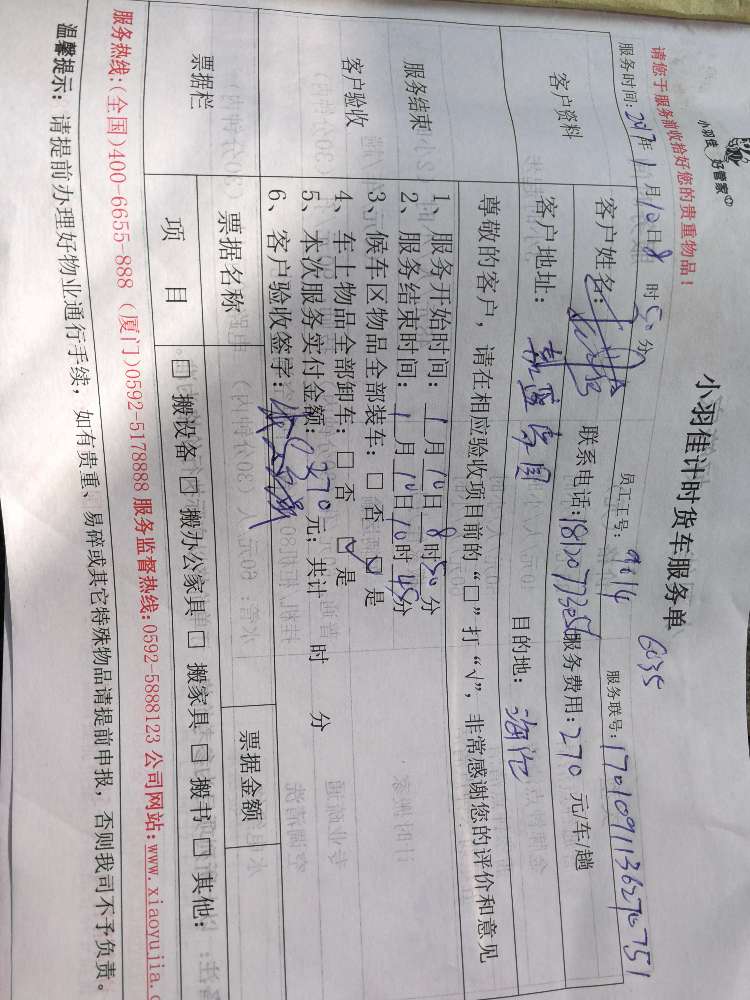 小羽佳 好管家
小羽佳计时货车服务单
请您于服务前收拾好您的贵重物品！
6035
服务时间：2017年1月10日8时50分 员工工号：9014 服务联号：1701091136270751
客户资料
客户姓名： 联系电话： 服务费用：270元/车/趟
客户地址： 目的地：海沧
尊敬的客户，请在相应验收项目前的“□”打“√”，非常感谢您的评价和意见
服务结束
客户验收
1、服务开始时间：1月10日8时50分
2、服务结束时间：1月10日10时45分
3、候车区物品全部装车：□ 否 □ 是
4、车上物品全部卸车：□ 否 ☑ 是
5、本次服务实付金额：270元；共计 时 分
6、客户验收签字：
票据栏
票据名称 票据金额
项 目
□ 搬设备 □ 搬办公家具 □ 搬家具 □ 搬书 □ 其他：
服务热线：(全国)400-6655-888 (厦门)0592-5178888 服务监督热线：0592-5888123 公司网站：www.xiaoyujia.c
温馨提示：请提前办理好物业通行手续，如有贵重、易碎或其它特殊物品请提前申报，否则我司不予负责。